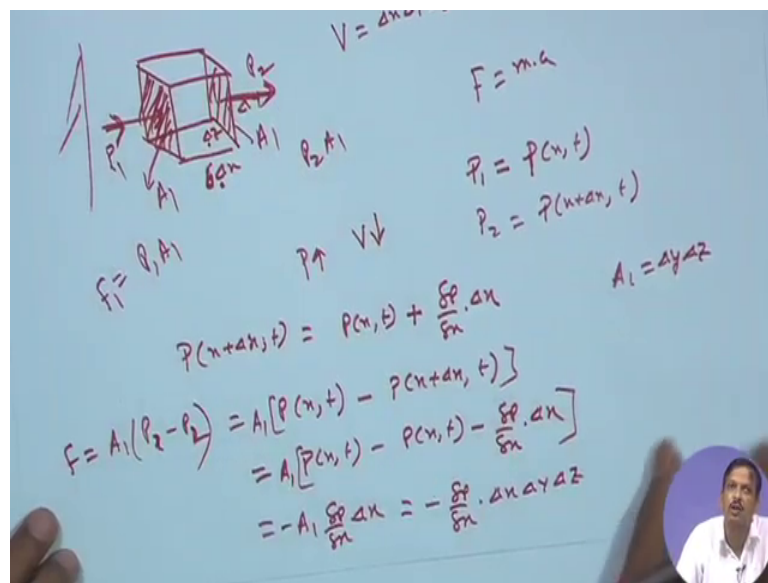 V = Δx
P₂
F = m.a
Δz
A₁
P₂A₁
P₁
A₁
P₁ = P(x,t)
P₂ = P(x+Δx, t)
f₁ = P₁A₁
P↑ V↓
A₁ = Δy Δz
P(x+Δx, t) = P(x,t) + δP/δx . Δx
F = A₁(P₂ - P₂) = A₁[P(x,t) - P(x+Δx, t)]
= A₁[P(x,t) - P(x,t) - δP/δx . Δx]
= -A₁ δP/δx Δx = - δP/δx . Δx Δy Δz